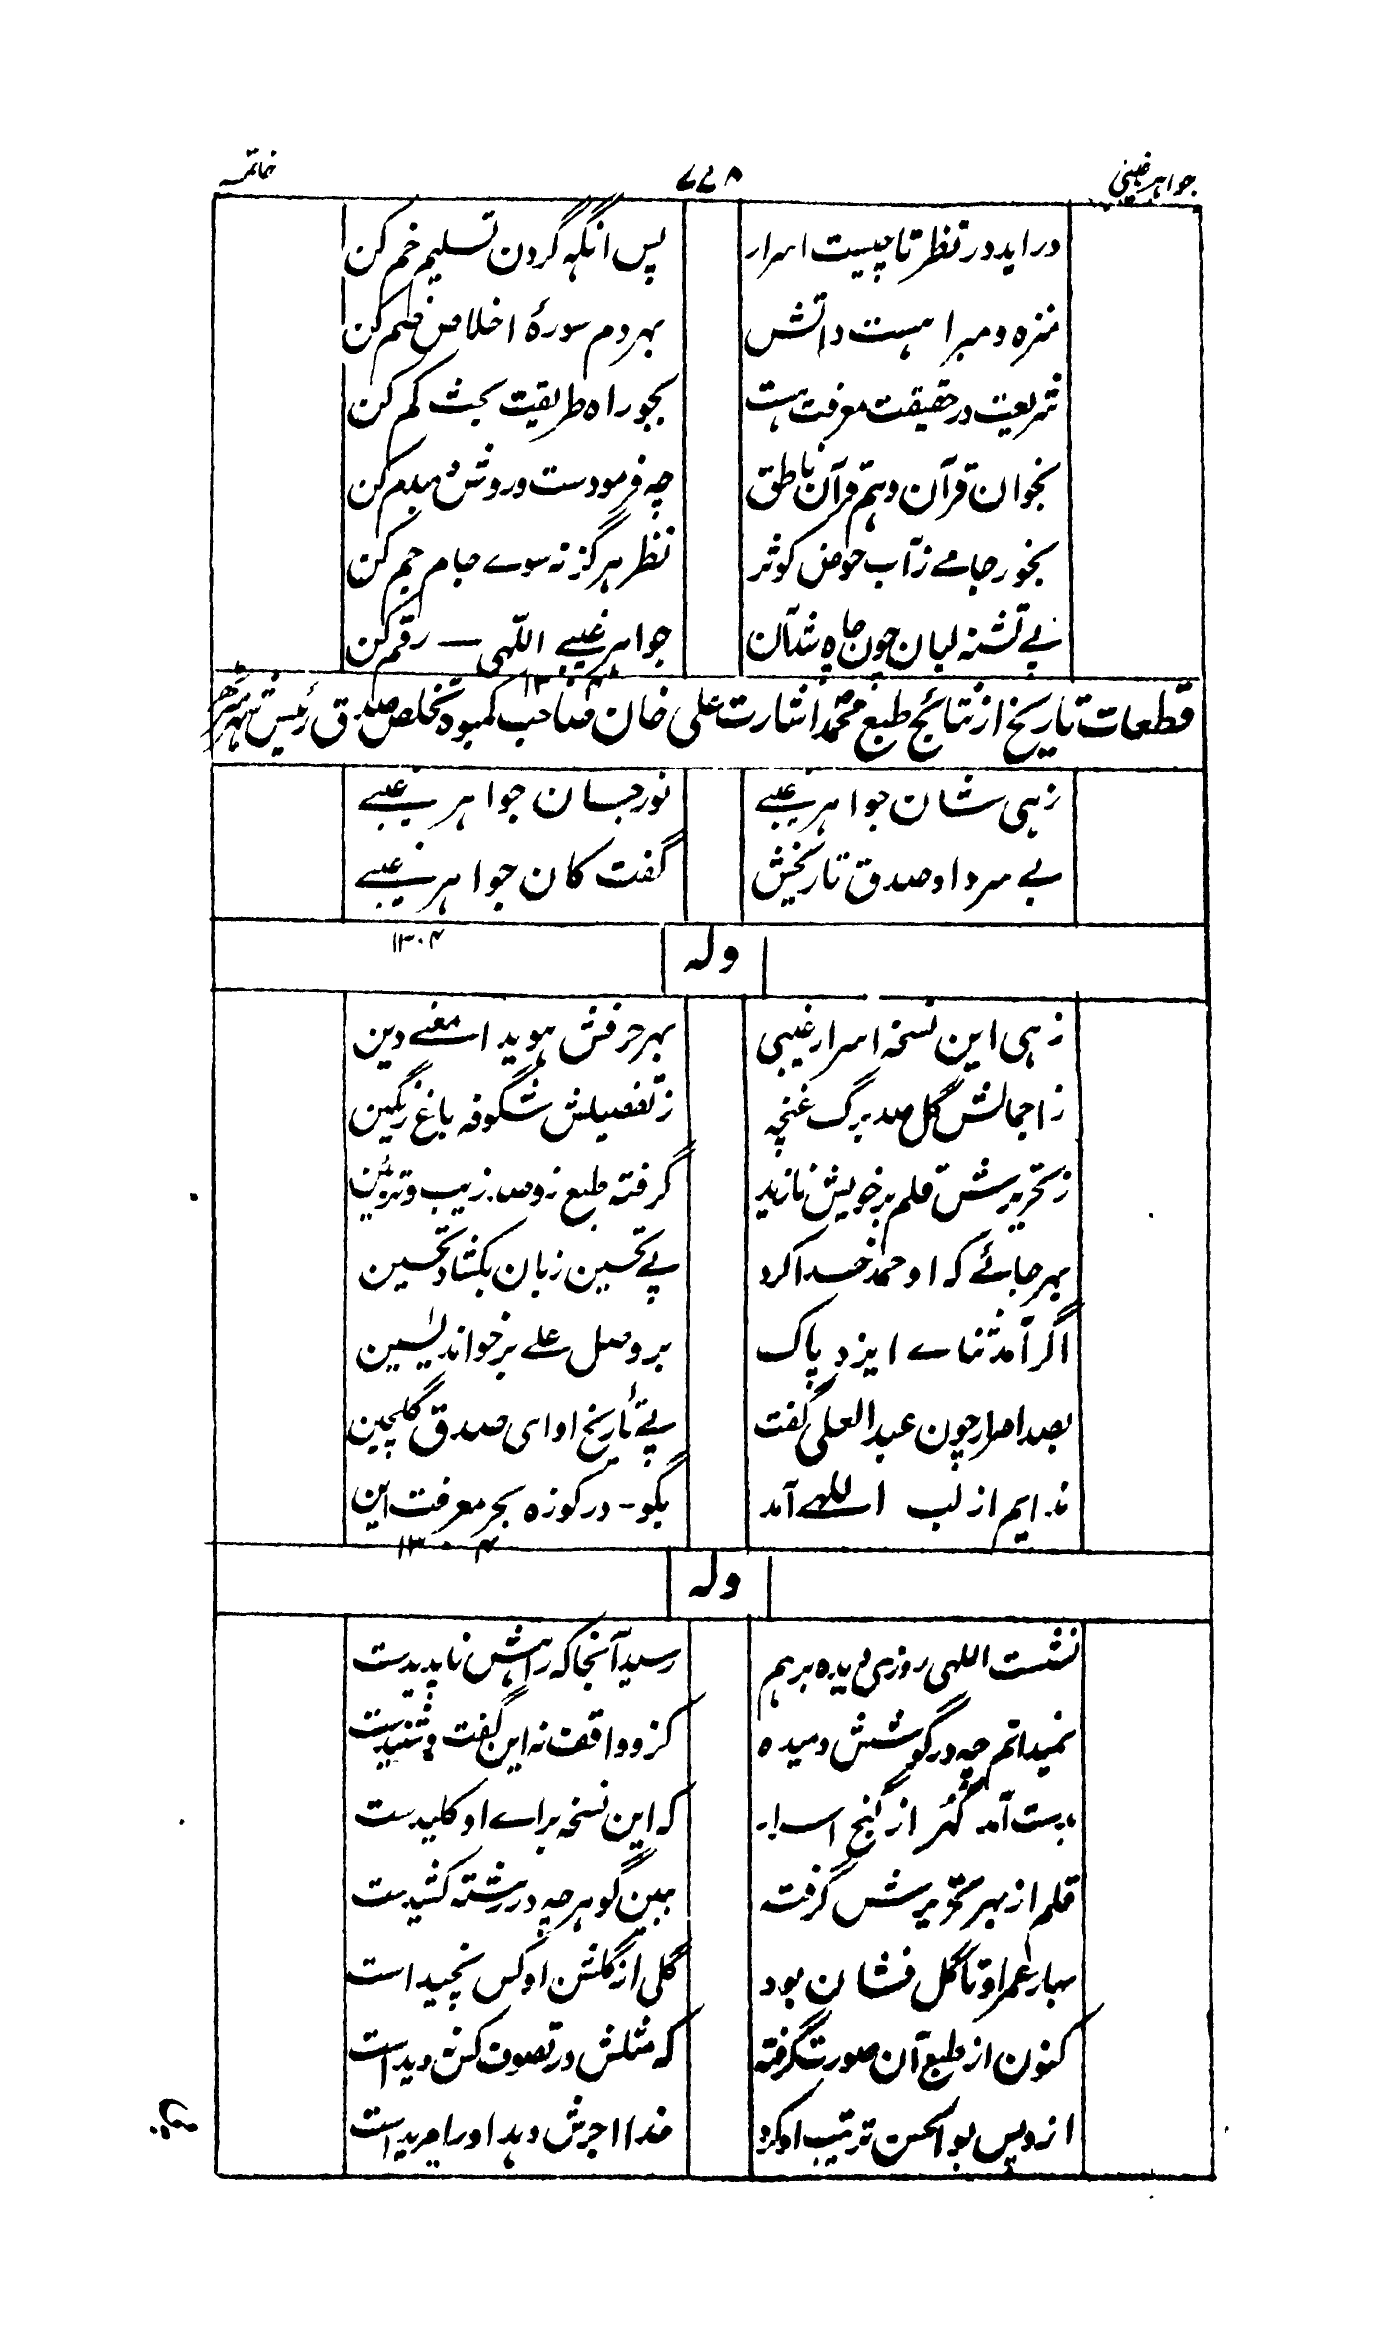 جواهر غیبی ۷۷۸ خاتمه
دراید در نظر تا چیست اسرار پس انگه گردن تسلیم خم کن
منزه و مبرا هست ذاتش بهر دم سورۀ اخلاص ضم کن
شریعت در حقیقت معرفت هست بجو راه طریقت بحث کم کن
بخوان قرآن و هم قرآن ناطق چه فرمودست و روش
بخور جامے ز آب حوض کوثر نظر هرگز نه سوے جام جم کن
پے تشنه لبان چون چاه جواهر غیبے اللهی — رقم کن
۱۳۰۴
قطعات تاریخ از نتائج طبع محمد اشارت علی خان صاحب کمبوه تخلص صدق رئیس شهر
زهی شان جواهر غیبے نور جسان جواهر غیبے
بے سر داد صدق تاریخش گفت کان جواهر غیبے
۱۳۰۴
وله
زهی این نسخه اسرار غیبی بهر حرفش هویدا معنے دین
ز اجمالش گل صد برگ غنچه ز تفصیلش شگوفه باغ رنگین
ز تحریرش قلم بر خویش نازید گرفته طبع زو صد زیب و تزئین
بهر جائے که او حمد خدا کرد پے تحسین زبان بکشاد تحسین
اگر آمد ثناے ایزد پاک برو صل علے برخواند یٰسین
بصد اصرار چون عبد العلی گفت پے تاریخ او ای صدق گلچین
ندایم از لب اللهے آمد بگو - در کوزه بحر معرفت این
۱۳۰۴
وله
نشست اللهی روزی دیده برهم رسید آنجا که راهش ناپدیدست
نمیدانم چه در گوشش دمیده کزو واقف نه این گفت و شنیدست
بدست آمد گهر از گنج اسرار که این نسخه براے او کلیدست
قلم از بهر تحریرش گرفته ببین گوهر چه در رشته کشیدست
بهار عمر او تا گل فشان بود گلی از گلشن او کس نچیداست
کنون از طبع آن صورت گرفته که مثلش در تصوف کس نه دیداست
از دپس بو الحسن ترتیب او کرد خدا اجرش دهد او را مریداست